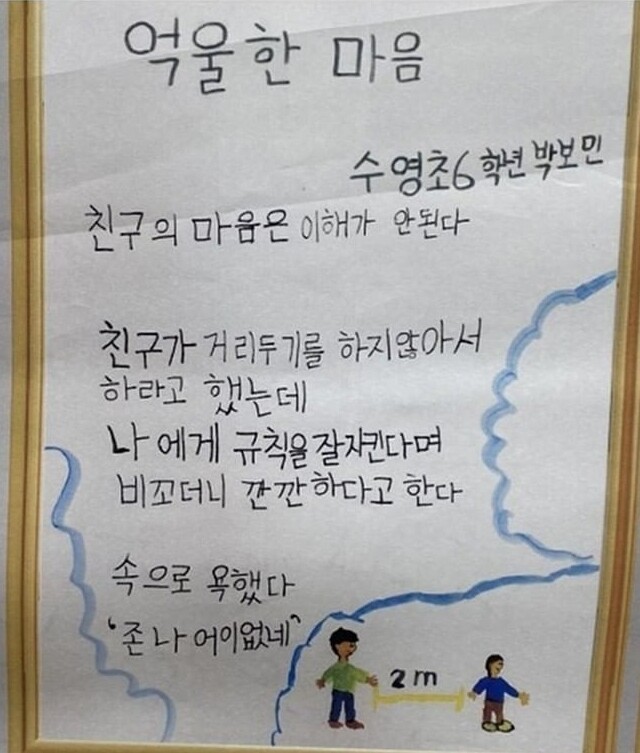 억울한 마음
수영초6학년 박보민
친구의 마음은 이해가 안된다
친구가 거리두기를 하지않아서
하라고 했는데
나에게 규칙을 잘지킨다며
비꼬더니 깐깐하다고 한다
속으로 욕했다
'존나 어이없네'
2m